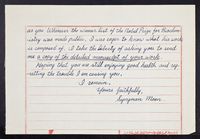 as you. Whenever the winner list of the Nobel Prize for Biochem-
istry was made public, I was eager to know what his work
is composed of. I take the liberty of asking you to send
me a copy of the detailed manuscript of your work.
Hoping that you are still enjoying good health and reg-
retting the trouble I am causing you,
I remain,
Yours faithfully,
Moon